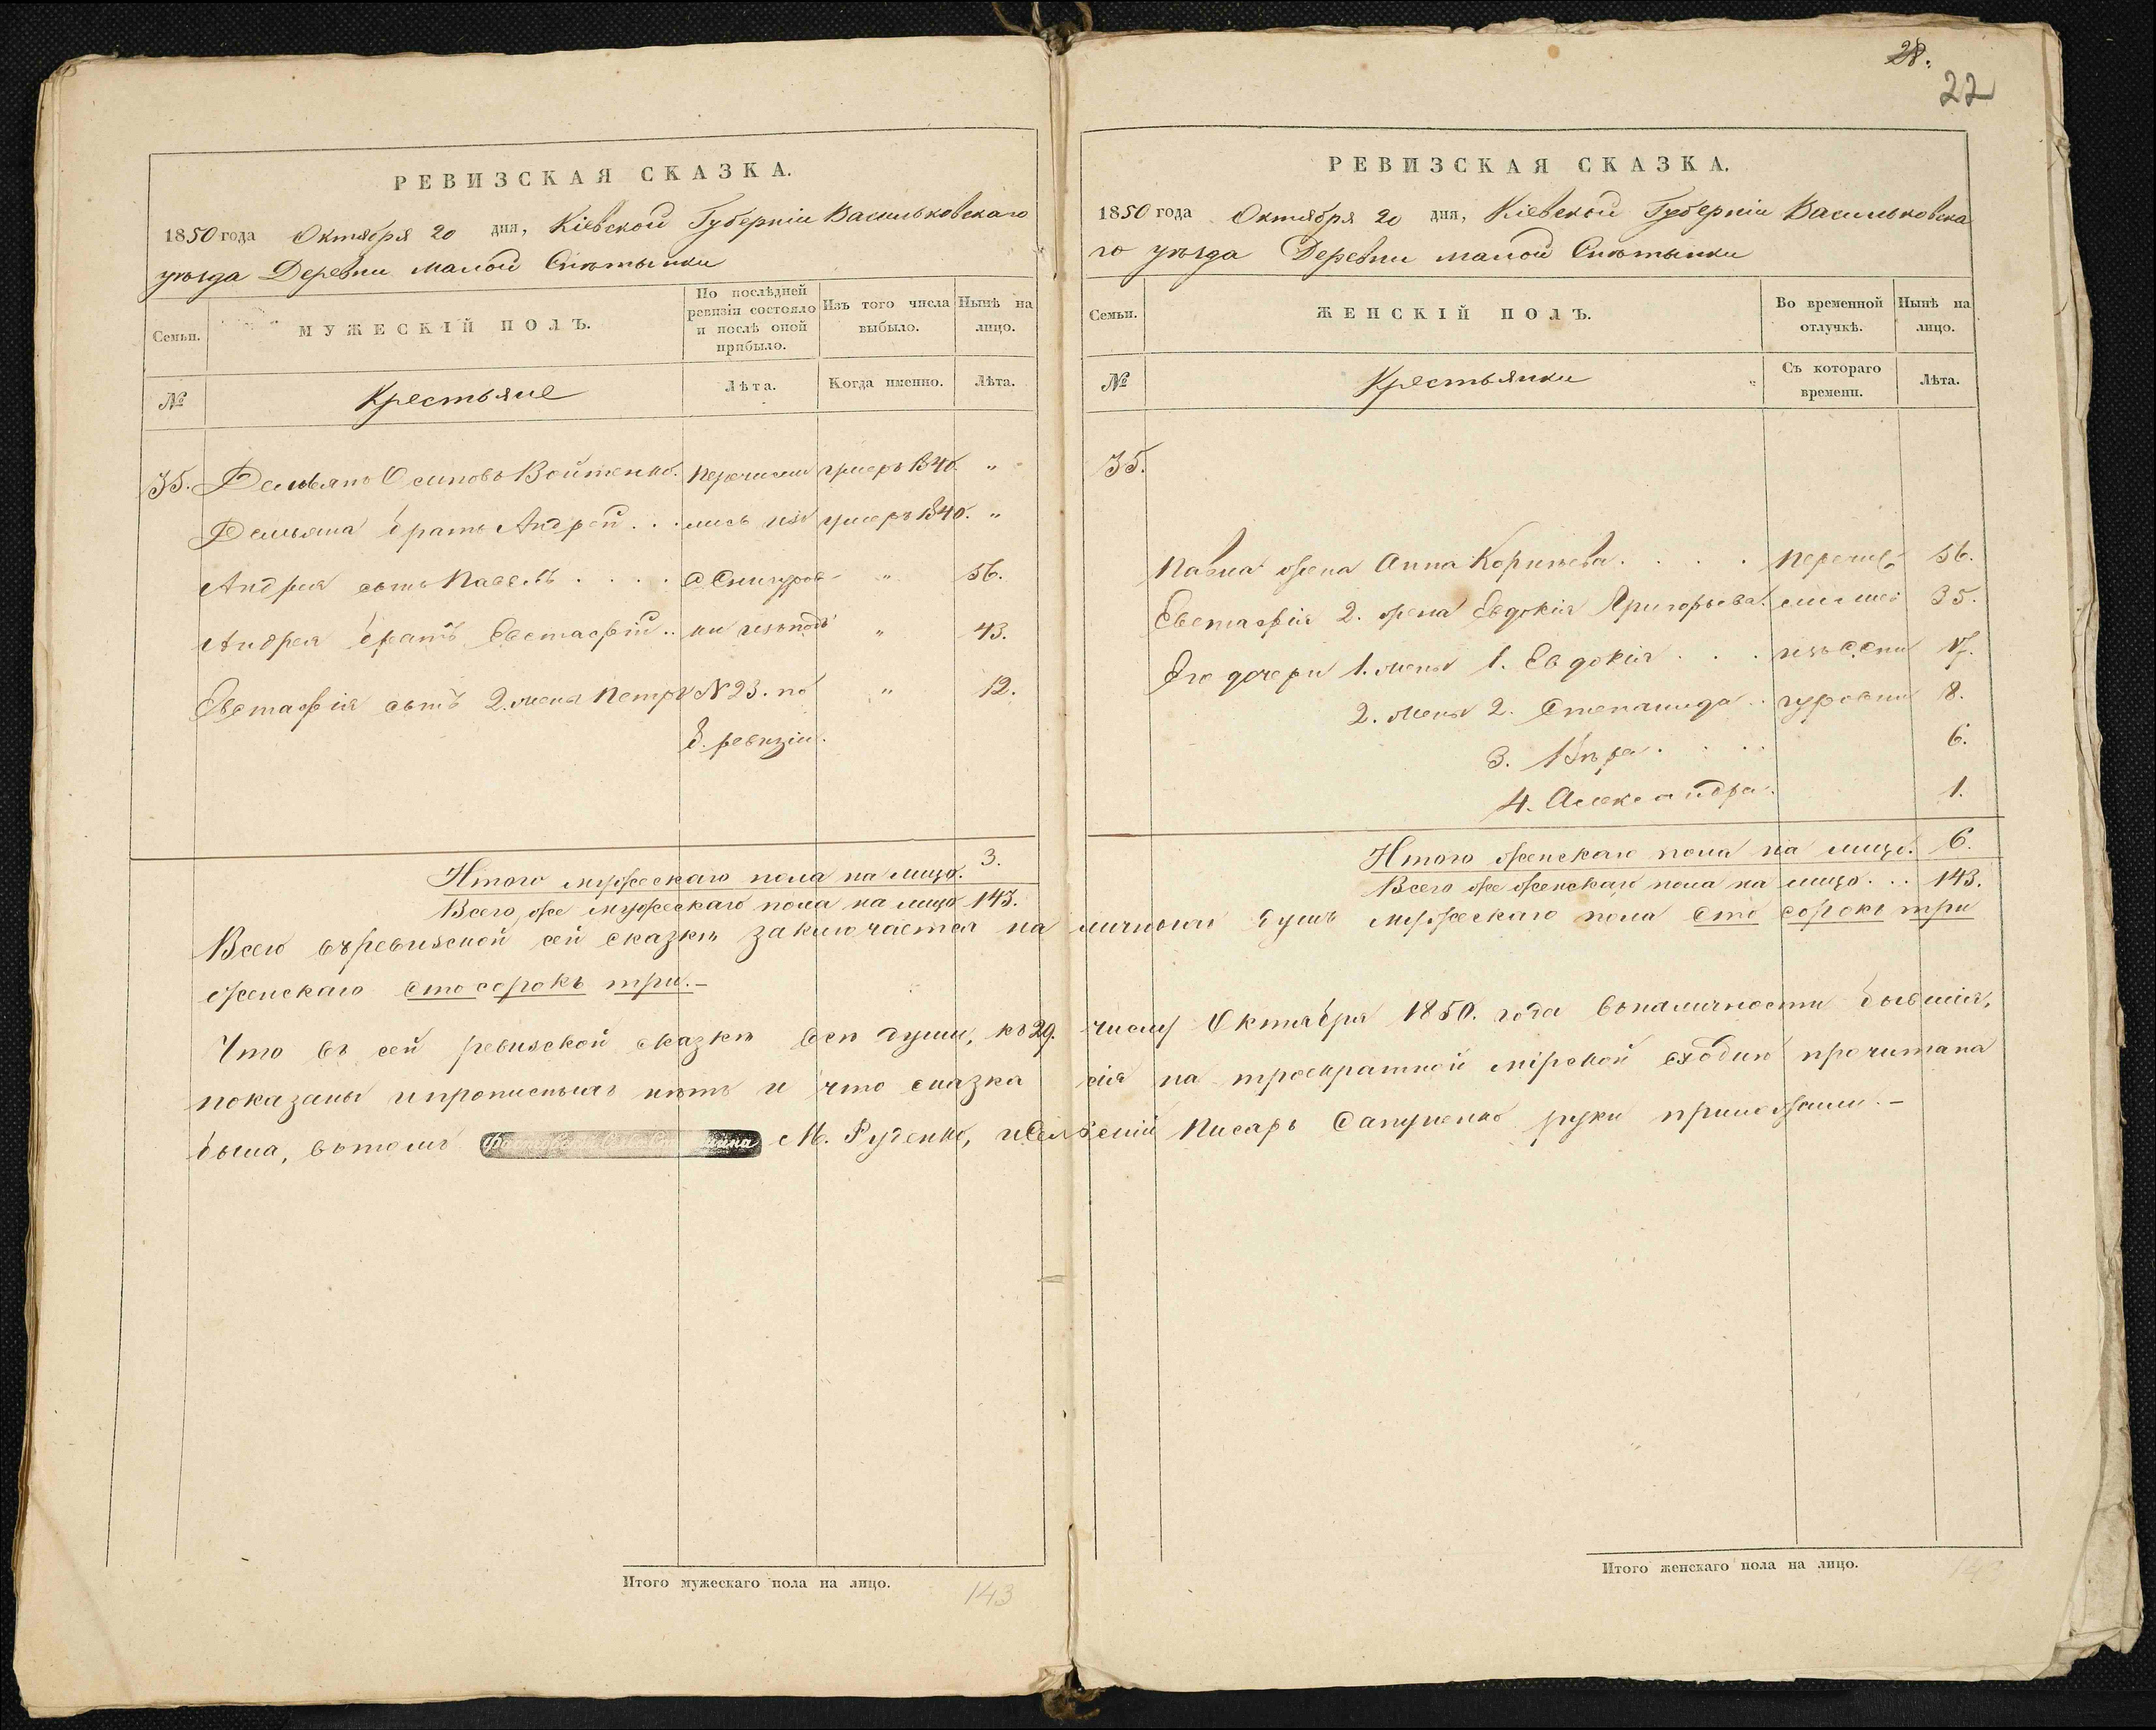 28.
22
РЕВИЗСКАЯ СКАЗКА.
1850 года Октября 20 дня, Кіевской Губерніи Васильковскаго
уѣзда Деревни малой Снѣтынки
Семьи.
МУЖЕСКІЙ ПОЛЪ.
По послѣдней ревизіи состояло и послѣ оной прибыло.
Изъ того числа выбыло.
Нынѣ на лицо.
№
Крестьяне
Лѣта.
Когда именно.
Лѣта.
35. Демьянъ Осиповъ Войтенко. перечисли умеръ 1840. "
Демьяна братъ Андрей . . . лись изъ умеръ 1840. "
Андрея сынъ Павелъ . . . . С Снигуров- " 56.
Андрея братъ Евстафій . . ки изъ подъ " 43.
Евстафія сынъ 2. жены Петръ N 23. по " 12.
8. ревизіи.
Итого мужескаго пола на лицо. 3.
Всего же мужескаго пола на лицо 143.
РЕВИЗСКАЯ СКАЗКА.
1850 года Октября 20 дня, Кіевской Губерніи Васильковска
го уѣзда Деревни малой Снѣтынки
Семьи.
ЖЕНСКІЙ ПОЛЪ.
Во временной отлучкѣ.
Нынѣ на лицо.
№
Крестьянки
Съ котораго времени.
Лѣта.
35.
Павла жена Анна Корнѣева . . . . 56.
Евстафія 2. жена Евдокія Григорьева. 35.
Его дочери 1. жены 1. Евдокія . . . изъ С. Сни 17.
2. жены 2. Степанида . . гуровки 8.
3. Вѣра . . . . 6.
4. Александра . 1.
Итого женскаго пола на лицо. 6.
Всего же женскаго пола на лицо . . . 143.
Всего въ ревизской сей сказкѣ заключается на личныхъ душъ мужескаго пола сто сорокъ три
женскаго сто сорокъ три.-
Что въ сей ревизской сказкѣ всѣ души, къ 29. числу Октября 1850. года въ наличности бывшія,
показаны и прописныхъ нѣтъ и что сказка сія на троекратной мірской сходкѣ прочитана
была, вътомъ М. Руденко, и Сельскій Писарь Сапуненко руки приложили.-
Итого мужескаго пола на лицо. 143
Итого женскаго пола на лицо.